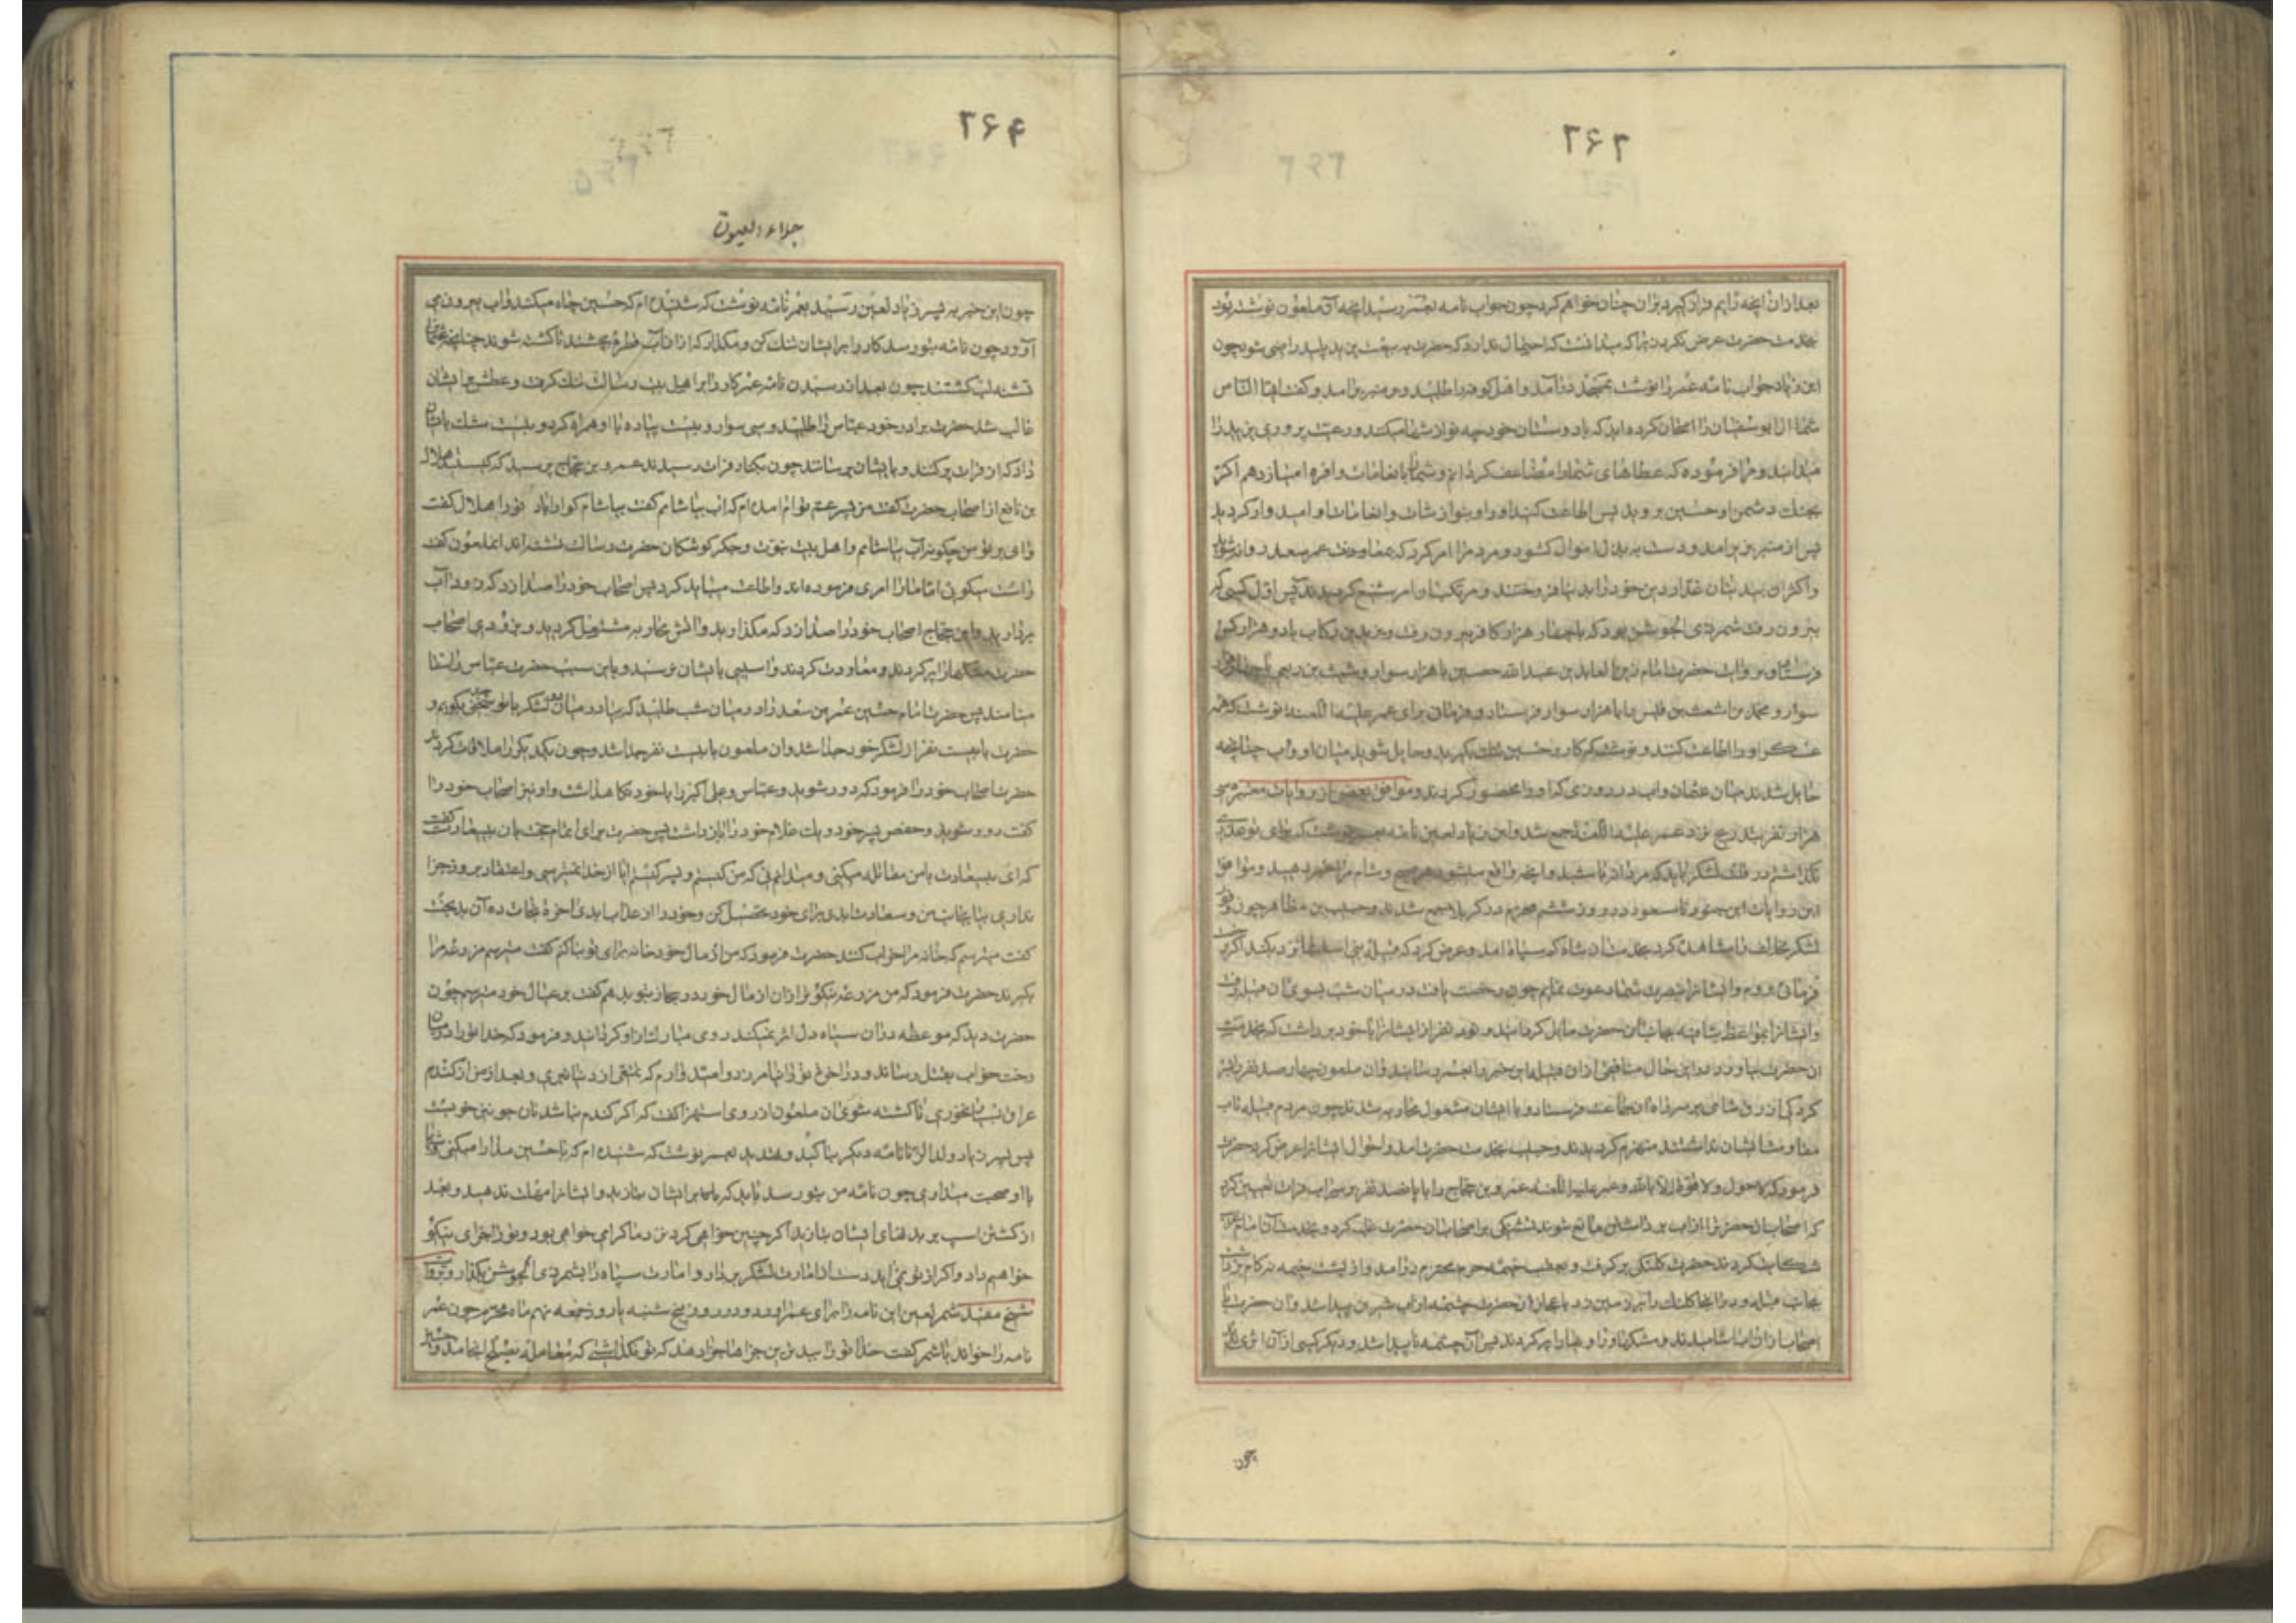 ۲۶۲
بعد از ان آنچه رایم قرار کیرد بران چنان خواهم کرد چون جواب نامه بعمر رسید آنچه آن ملعون نوشته بود
بخدمت حضرت عرض نکرد زیرا که میدانست که احتمال ندارد که حضرت به بیعت یزید پلید راضی شود چون
ابن زیاد جواب نامه عمر را نوشت بمسجد درآمد و اهل کوفه را طلبید و بر منبر برامد و کفت ایها الناس
شما ال ابو سفیان را امتحان کرده اید که با دوستان خود چه نوازشها میکنند و رعیت پروری یزید را
میدانید و مرا فرموده که عطاهای شما را مضاعف کردانم و شما را بانعامات وافره امتیاز دهم اکر
بجنک دشمن او حسین بروید پس اطاعت کنید او را و بنوازشات و انعامات او امیدوار کردید
پس از منبر بزیر امد و دست به بذل اموال کشود و مردم را امر کرد که بمعاونت عمر سعد روانه شوند
واکثر ان بیدینان غدار دین خود را بدنیا فروختند و مرتکب این امر شنیع کردیدند پس اول کسی که
بیرون رفت شمر ذی الجوشن بود که با چهار هزار کافر بیرون رفت و یزید بن رکاب با دو هزار کس
حضرت امام زین العابدین عبد الله حصین با هزار سوار و شبث بن ربعی با
سوار و محمد بن اشعث بن قیس را با هزار سوار فرستاد و فرمان برای عمر علیه اللعنه نوشت که همه
عسکر او را اطاعت کنند و نوشت که کار بر حسین تنک بکیرید و حایل شوید میان او و آب چنانچه
حایل شدند میان عثمان و اب در روزی که او را محصور کردند و موافق بعضی از روایات معتبره سی
هزار نفر بتدریج نزد عمر علیه اللعنه جمع شد و ابن زیاد لعین نامه بعمر نوشت که جای تو عذری
نکذاشتم در قلت لشکر باید که مردانه باشید و آنچه واقع میشود هر صبح و شام مرا خبر دهید و موافق
این روایات این جنود نامسعود در روز ششم محرم در کربلا جمع شدند و حبیب بن مظاهر چون وفور
لشکر مخالف را مشاهده کرد بخدمت ان شاه که سپاه امد و عرض کرد که قبیله بنی اسد بما نزدیکند اکر
فرمائی بروم و ایشانرا بنصرت شما دعوت نمایم چون رخصت یافت در میان شب بسوی ان قبیله رفت
و ایشانرا بمواعظ شافیه بجانب ان حضرت مایل کردانید و نود نفر از ایشانرا با خود برداشت که بخدمت
ان حضرت بیاورد در این حال منافقی از ان قبیله این خبر را بعمر رسانید و ان ملعون چهار صد نفر را
کرد که ازرق شامی بر سر راه ان جماعت فرستاد و با ایشان مشغول محاربه شدند چون مردم قبیله تاب
مقاومت ایشان نداشتند منهزم کردیدند و حبیب بخدمت حضرت امد و احوال ایشانرا عرض کرد حضرت
فرمود که لا حول و لا قوة الا بالله و عمر علیه اللعنه عمرو بن حجاج را با پانصد نفر بر سر آب فرات تعیین کرد
که اصحاب ان حضرترا از اب برداشتن مانع شوند تشنکی بر اصحاب ان حضرت غلبه کرد و بخدمت آن امام
شکایت کردند حضرت کلنکی برکرفت و بعقب خیمه حرم محترم درآمد و از پشت خیمه نه کام برداشت
بجانب قبله و در انجا کلنک را بر زمین زد باعجاز ان حضرت چشمه از آب شیرین پیدا شد و ان حضرت با
اصحاب از ان اب اشامیدند و مشکها و راویها را پر کردند پس آن چشمه ناپیدا شد و دیکر کسی از آن اثری
چون
۲۶۴
جلاء العیون
چون این خبر به پسر زیاد لعین رسید بعمر نامه نوشت که شنیده ام که حسین چاه میکند و اب بیرون می
آورد چون نامه بتو رسد کار را بر ایشان تنک کن و مکذار که از ان آب قطرهٔ بچشند تا کشته شوند چنانچه عثمان
تشنه لب کشتند چون بعد از رسیدن نامه عمر کار را بر اهل بیت رسالت تنک کرفت و عطش بر ایشان
غالب شد حضرت برادر خود عباس را طلبید و سی سوار و بیست پیاده با او همراه کرد و بیست مشک بایشان
داد که از فرات پر کنند و بایشان برسانند چون بکنار فرات رسیدند عمرو بن حجاج پرسید که کیستید هلال
بن نافع از اصحاب حضرت کفت من پسر عم توام امده ام که اب بیاشامم کفت بیاشام کوارا باد تو را هلال کفت
وای بر تو من چکونه آب بیاشامم و اهل بیت نبوت و جکر کوشکان حضرت رسالت تشنه اند انملعون کفت
راست میکوئی اما ما را امری فرموده اند و اطاعت میباید کرد پس اصحاب خود را صدا زد که زود آب
بردارید و ابن حجاج اصحاب خود را صدا زد که مکذارید و اتش محاربه مشتعل کردید و بزودی اصحاب
حضرت مشکها را پر کردند و معاودت کردند و اسیبی بایشان نرسید و باین سبب حضرت عباس را سقا
مینامند پس حضرت امام حسین عمر بن سعد را در میان شب طلبید که بیا در میان دو لشکر با تو سخنی بکویم و
حضرت با بیست نفر از لشکر خود جدا شد و ان ملعون با بیست نفر جدا شد و چون یکدیکر را ملاقات کردند
حضرت اصحاب خود را فرمود که دور شوید و عباس و علی اکبر را با خود نکاهداشت و او نیز اصحاب خود را
کفت دور شوید و حفص پسر خود و یک غلام خود را باز داشت پس حضرت برای اتمام حجت بان بیسعادت کفت
که ای بیسعادت با من مقاتله میکنی و میدانی که من کیستم و پسر کیستم ایا از خدا نمیترسی و اعتقاد بروز جزا
نداری بیا بجانب من و سعادت ابدی برای خود تحصیل کن و خود را از عذاب ابدی اخرة نجات ده آن بدبخت
کفت میترسم که خانه مرا خراب کنند حضرت فرمود که من از مال خود خانه برای تو بنا کنم کفت میترسم مزرعه مرا
بکیرند حضرت فرمود که من مزرعه نیکوتر از ان از مال خود در حجاز بتو بدهم کفت بر عیال خود میترسم چون
حضرت دید که موعظه در ان سیاه دل اثر نمیکند روی مبارک از او کردانید و فرمود که خدا تو را در میان
رخت خواب بقتل رساند و در اخرت تو را نیامرزد و امیدوارم که تمتعی از دنیا نبری و بعد از من از کندم
عراق نخوری تا کشته شوی ان ملعون از روی استهزا کفت که اکر کندم نباشد نان جو نیز خوبست
پس پسر زیاد ولد الزنا نامه دیکر بتاکید و تهدید بعمر نوشت که شنیده ام که با حسین مدارا میکنی و شبها
با او صحبت میداری چون نامه من بتو رسد باید که بر ایشان بتازید و ایشانرا مهلت ندهید و بعد
از کشتن اسب بر بدنهای ایشان بتازید اکر چنین خواهی کرد نزد ما کرامی خواهی بود و تو را جزای نیکو
خواهیم داد و اکر از تو نمی اید دست از امارت لشکر بردار و امارت سپاه را بشمر ذی الجوشن بکذار و بروایت
شیخ مفید شمر لعین این نامه را برای عمر اورد و در روز پنج شنبه یا روز جمعه نهم ماه محرم چون عمر
نامه را خواند با شمر کفت خدا تو را بدترین جزاها جزا دهد که تو نکذاشتی که معامله بصلح انجامد و